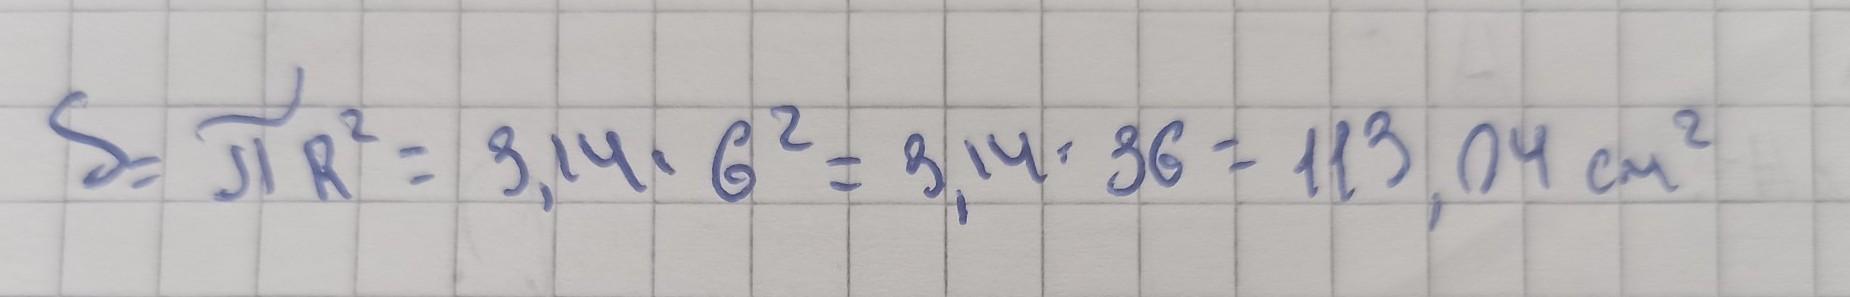 S = πR² = 3,14 · 6² = 3,14 · 36 = 113,04 см²